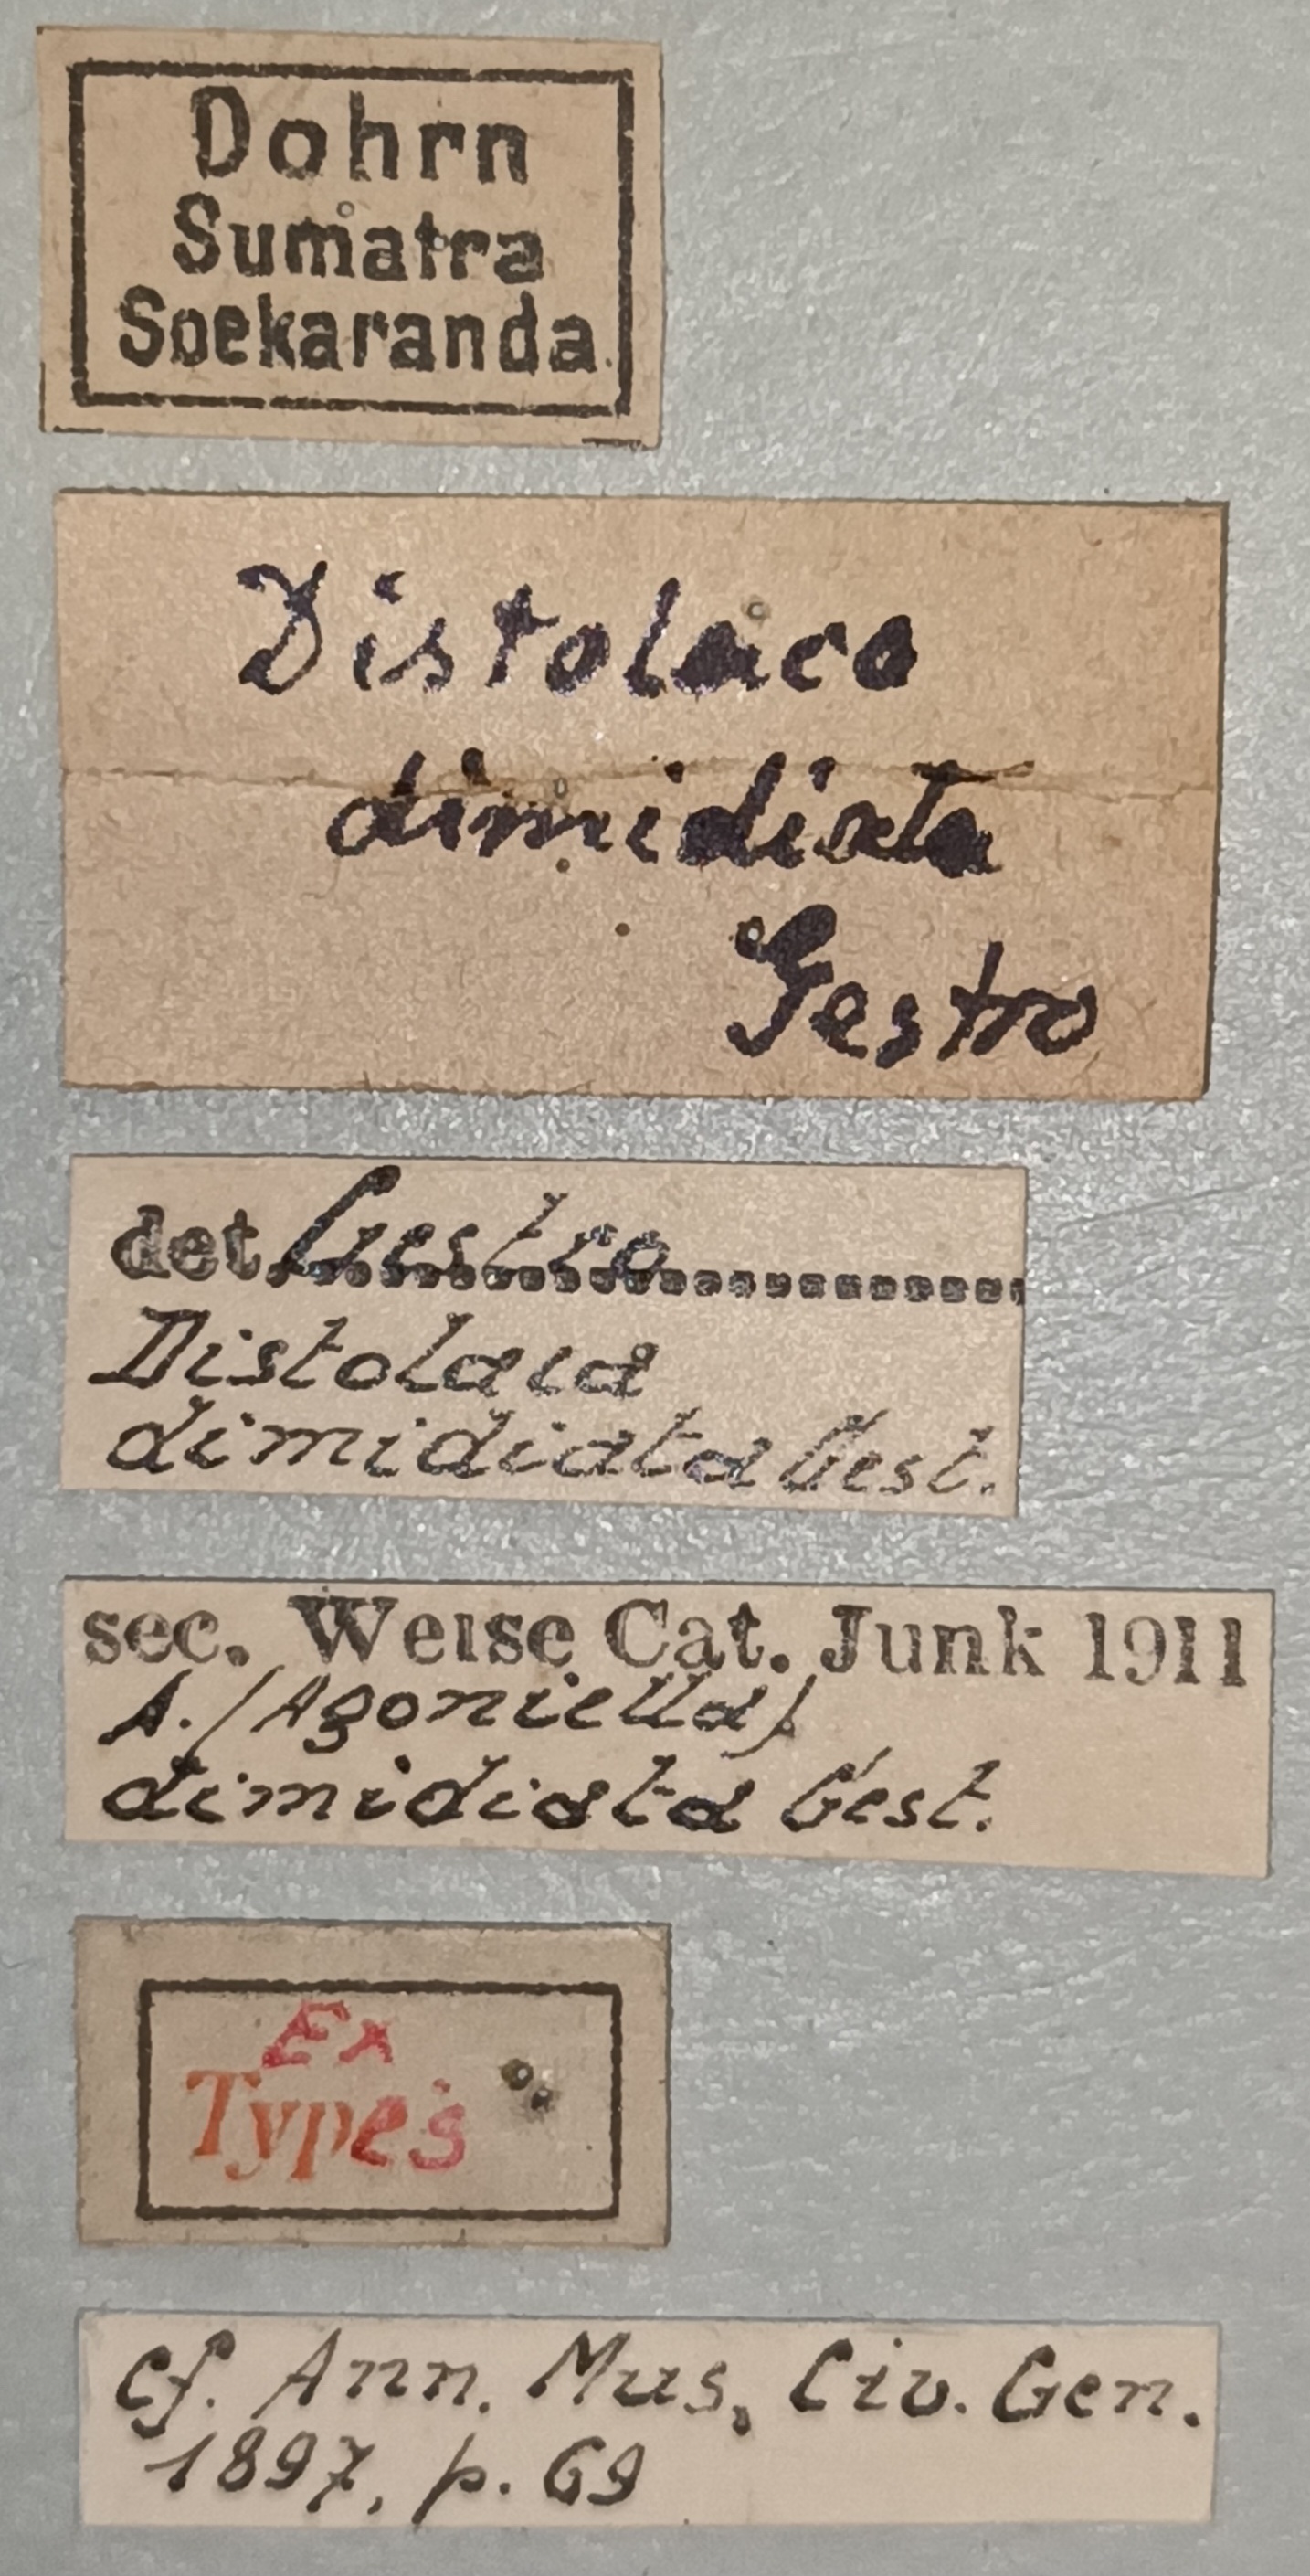 Dohrn
Sumatra
Soekaranda
Distolaca
dimidiata
Gestro
det. Gestro
Distolaca
dimidiata Gest.
sec. Weise Cat. Junk 1911
A. (Agoniella)
dimidiata Gest.
Ex
Types
cf. Ann. Mus. Civ. Gen.
1897, p. 69